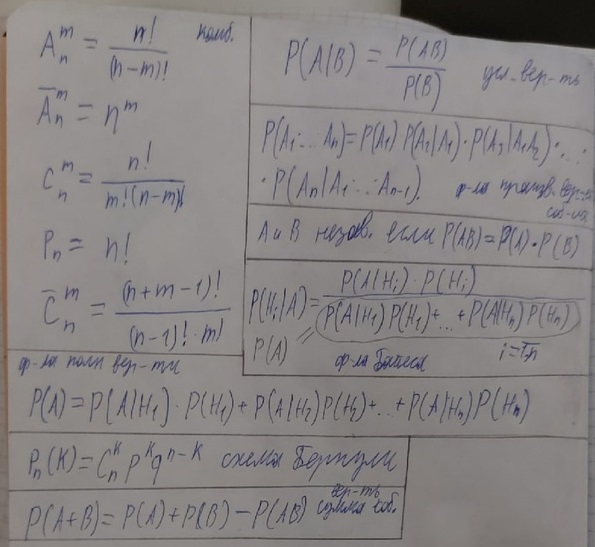 A_n^m = n! / (n-m)! комб.
Ā_n^m = n^m
C_n^m = n! / m!(n-m)!
P_n = n!
C̄_n^m = (n+m-1)! / (n-1)!·m!
P(A|B) = P(AB) / P(B) усл. вер-ть
P(A₁...Aₙ)=P(A₁)P(A₂|A₁)·P(A₃|A₁A₂)·...·
·P(Aₙ|A₁...Aₙ₋₁). ф-ла произв. вер-ти
соб-ия
A и B незав. если P(AB)=P(A)·P(B)
P(Hᵢ|A)= P(A|Hᵢ)·P(Hᵢ) / P(A|H₁)P(H₁)+...+P(A|Hₙ)P(Hₙ)
P(A) = ф-ла Байеса i=1,n
ф-ла полн вер-ти
P(A)=P(A|H₁)·P(H₁)+P(A|H₂)P(H₂)+...+P(A|Hₙ)P(Hₙ)
Pₙ(K)=C_n^K p^K q^{n-K} схема Бернули
P(A+B)=P(A)+P(B)-P(AB) вер-ть
сумма соб.